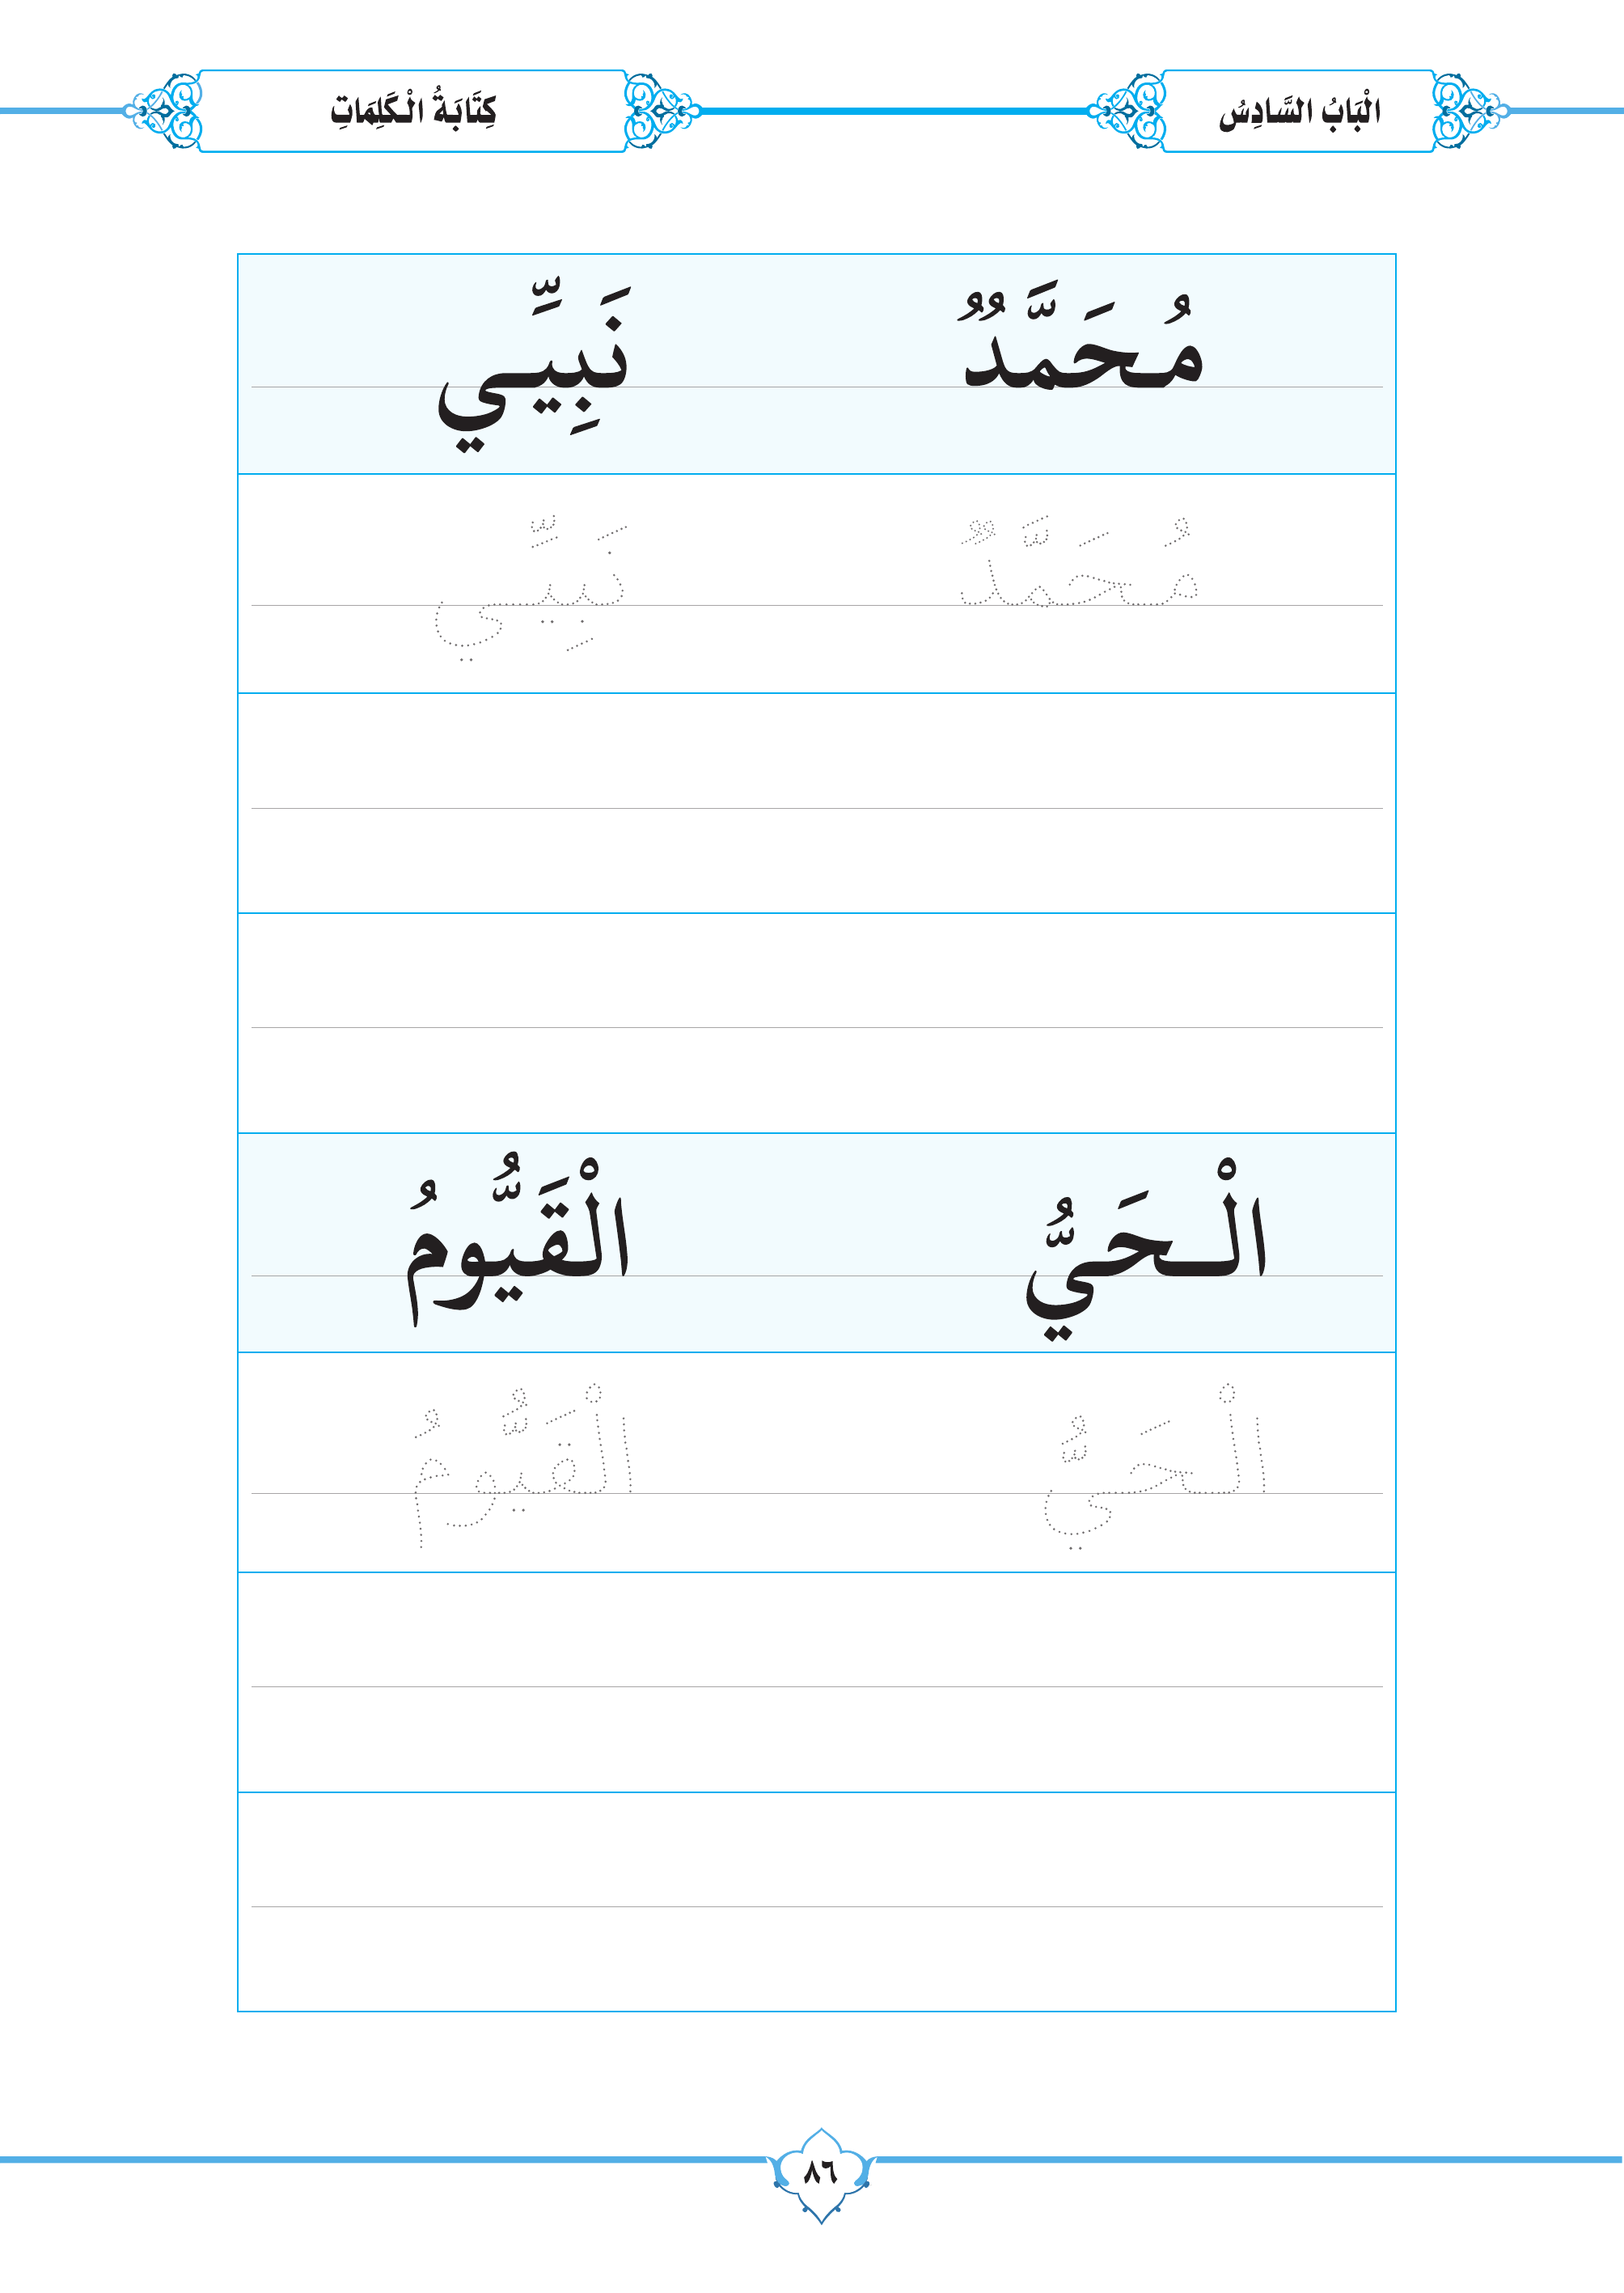 الْبَابُ السَّادِسُ كِتَابَةُ الْكَلِمَاتِ
مُحَمَّدٌ نَبِيَِّي
مُحَمَّدٌ نَبِيَِّي
الْحَيُّ الْقَيُّومُ
الْحَيُّ الْقَيُّومُ
٨٦